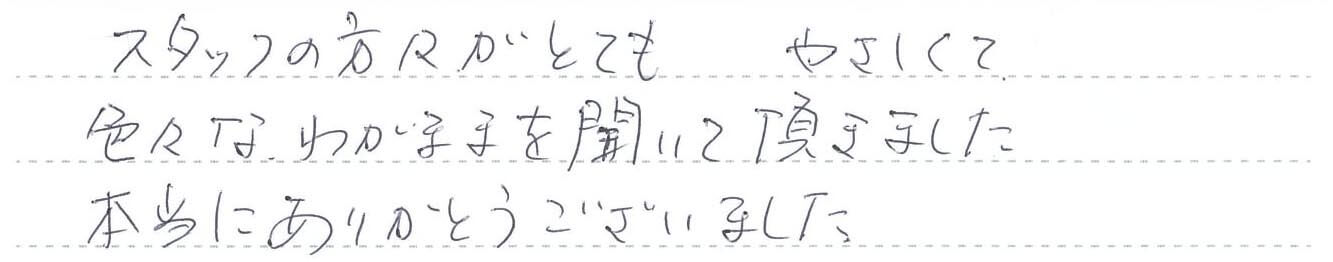 スタッフの方々がとても　やさしくて
色々なわがままを聞いて頂きました
本当にありがとうございました